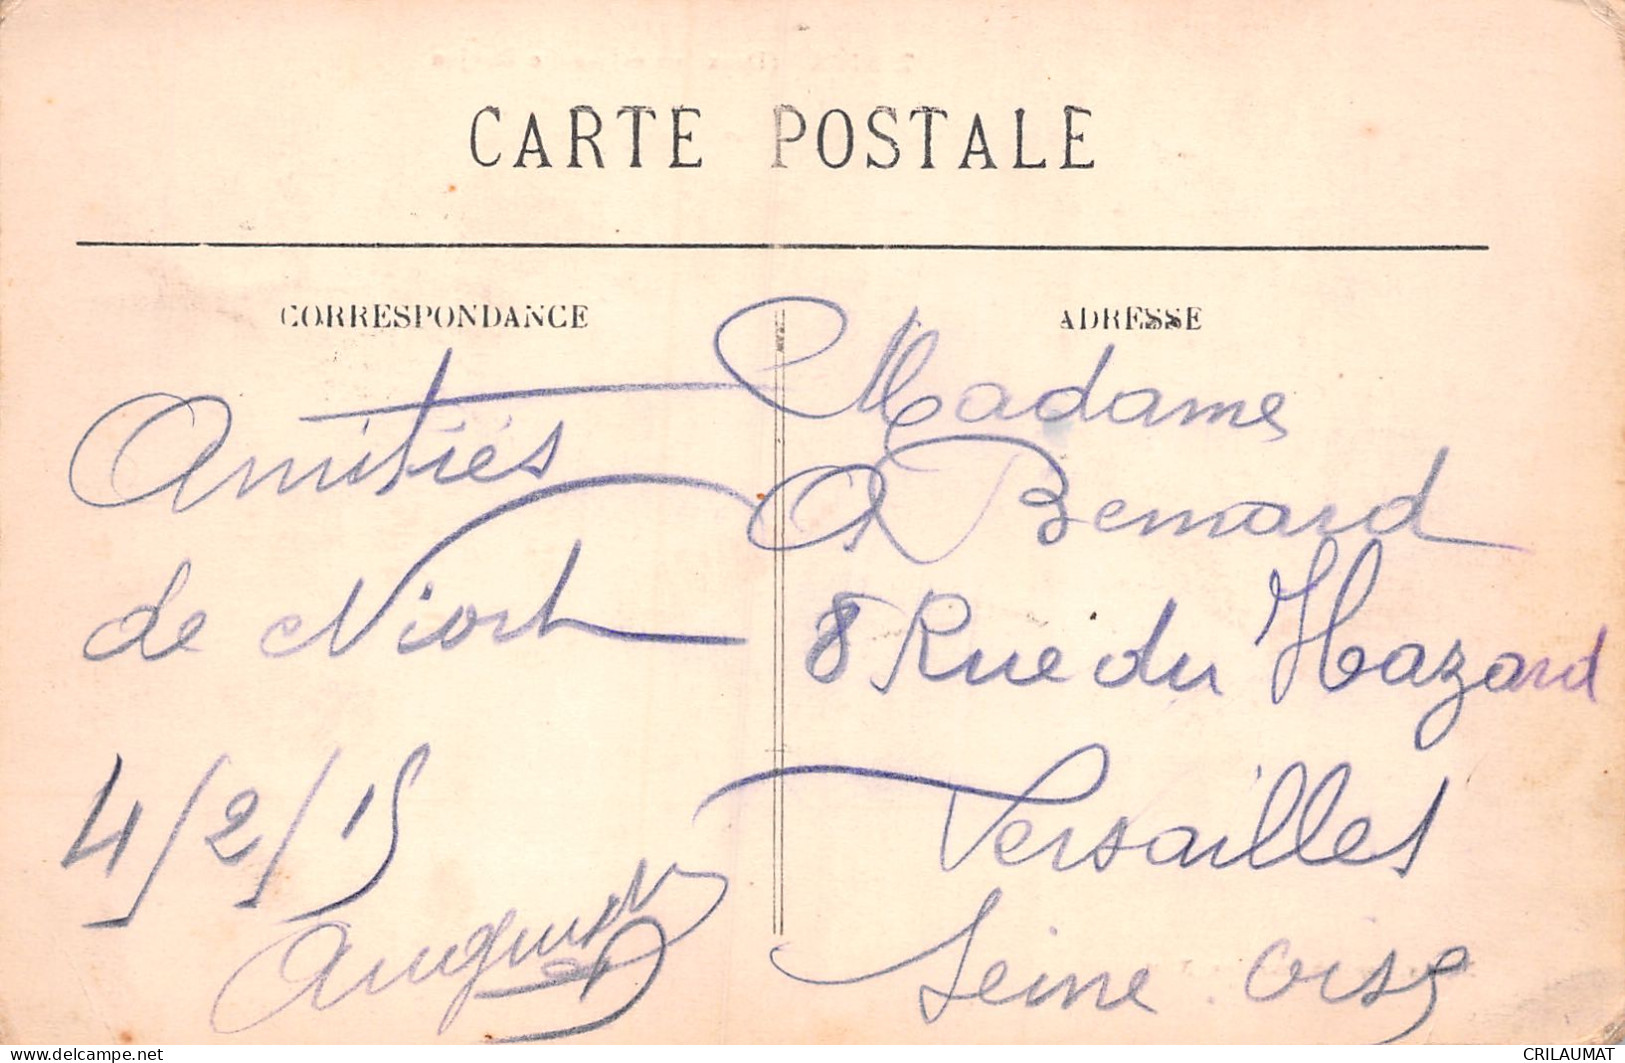 CARTE POSTALE
CORRESPONDANCE
ADRESSE
Amitiés
de Niort
4/2/15
Madame
A Bernard
8 Rue du Hazard
Versailles
Seine oise
CRILAUMAT